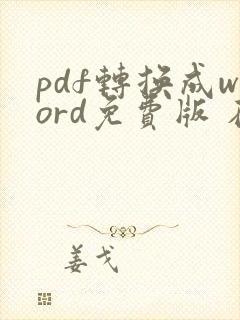 pdf轉換成w
ord免費版
姜戈